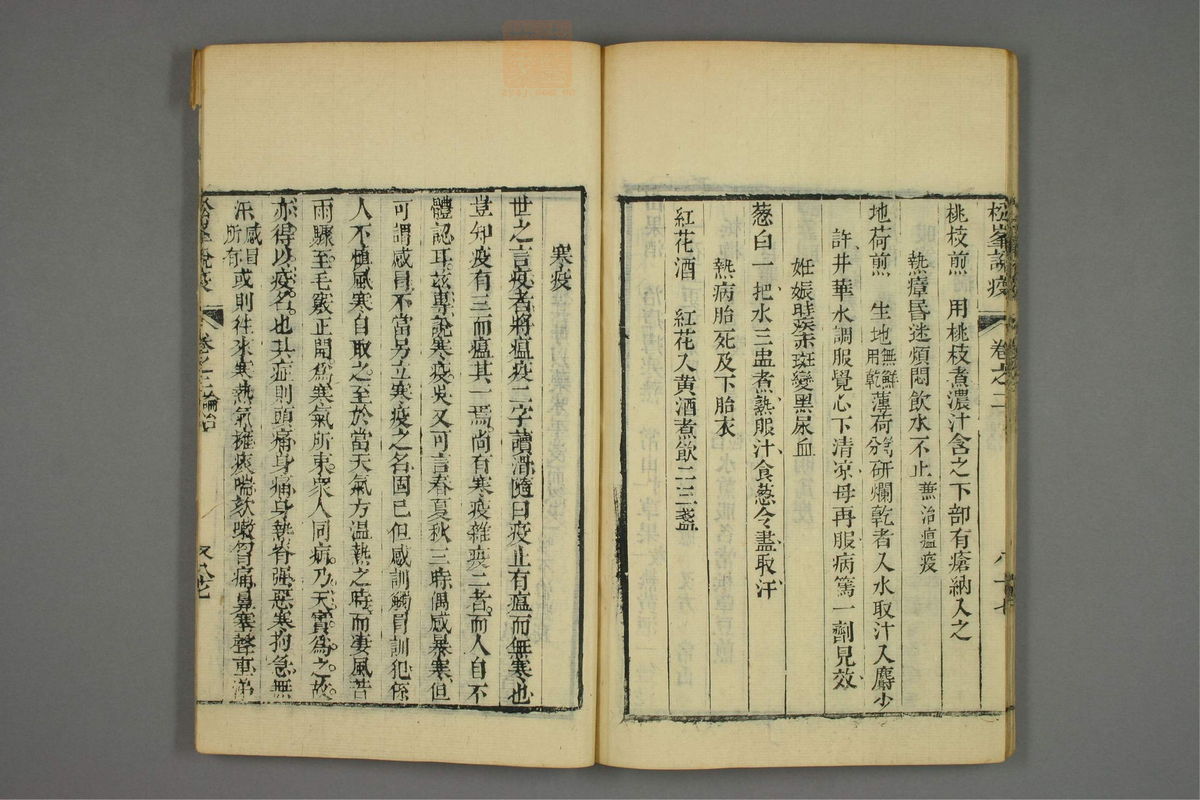 松峯說疫 卷之二 八十七
桃枝煎 用桃枝煮濃汁含之下部有瘡納入之
熱瘴昏迷煩悶飲水不止 兼治瘟疫
地荷煎 生地無鮮用乾薄荷研爛乾者入水取汁入麝少
許井華水調服覺心下清凉毋再服病篤一劑見效
妊娠時疾赤斑變黑尿血
葱白一把水三盅煮熟服汁食葱令盡取汗
熱病胎死及下胎衣
紅花酒 紅花入黄酒煮飲二三盞
寒疫
世之言疫者將瘟疫二字讀滑隨曰疫止有瘟而無寒也
豈知疫有三而瘟其一焉尚有寒疫雜疫二者而人自不
體認耳該專說寒疫吳又可言春夏秋三時偶感暴寒但
可謂感冒不當另立寒疫之名固已但感訓觸冒訓犯係
人不愼風寒自取之至於當天氣方温熱之時而凄風苦
雨驟至毛竅正開爲寒氣所束衆人同病乃天實爲之故
亦得以疫名也其症則頭痛身痛身熱脊强惡寒拘急無
汗感冒所有或則往來寒熱氣擁痰喘欬嗽胸痛鼻塞聲重涕
松峯說疫 卷之二論治